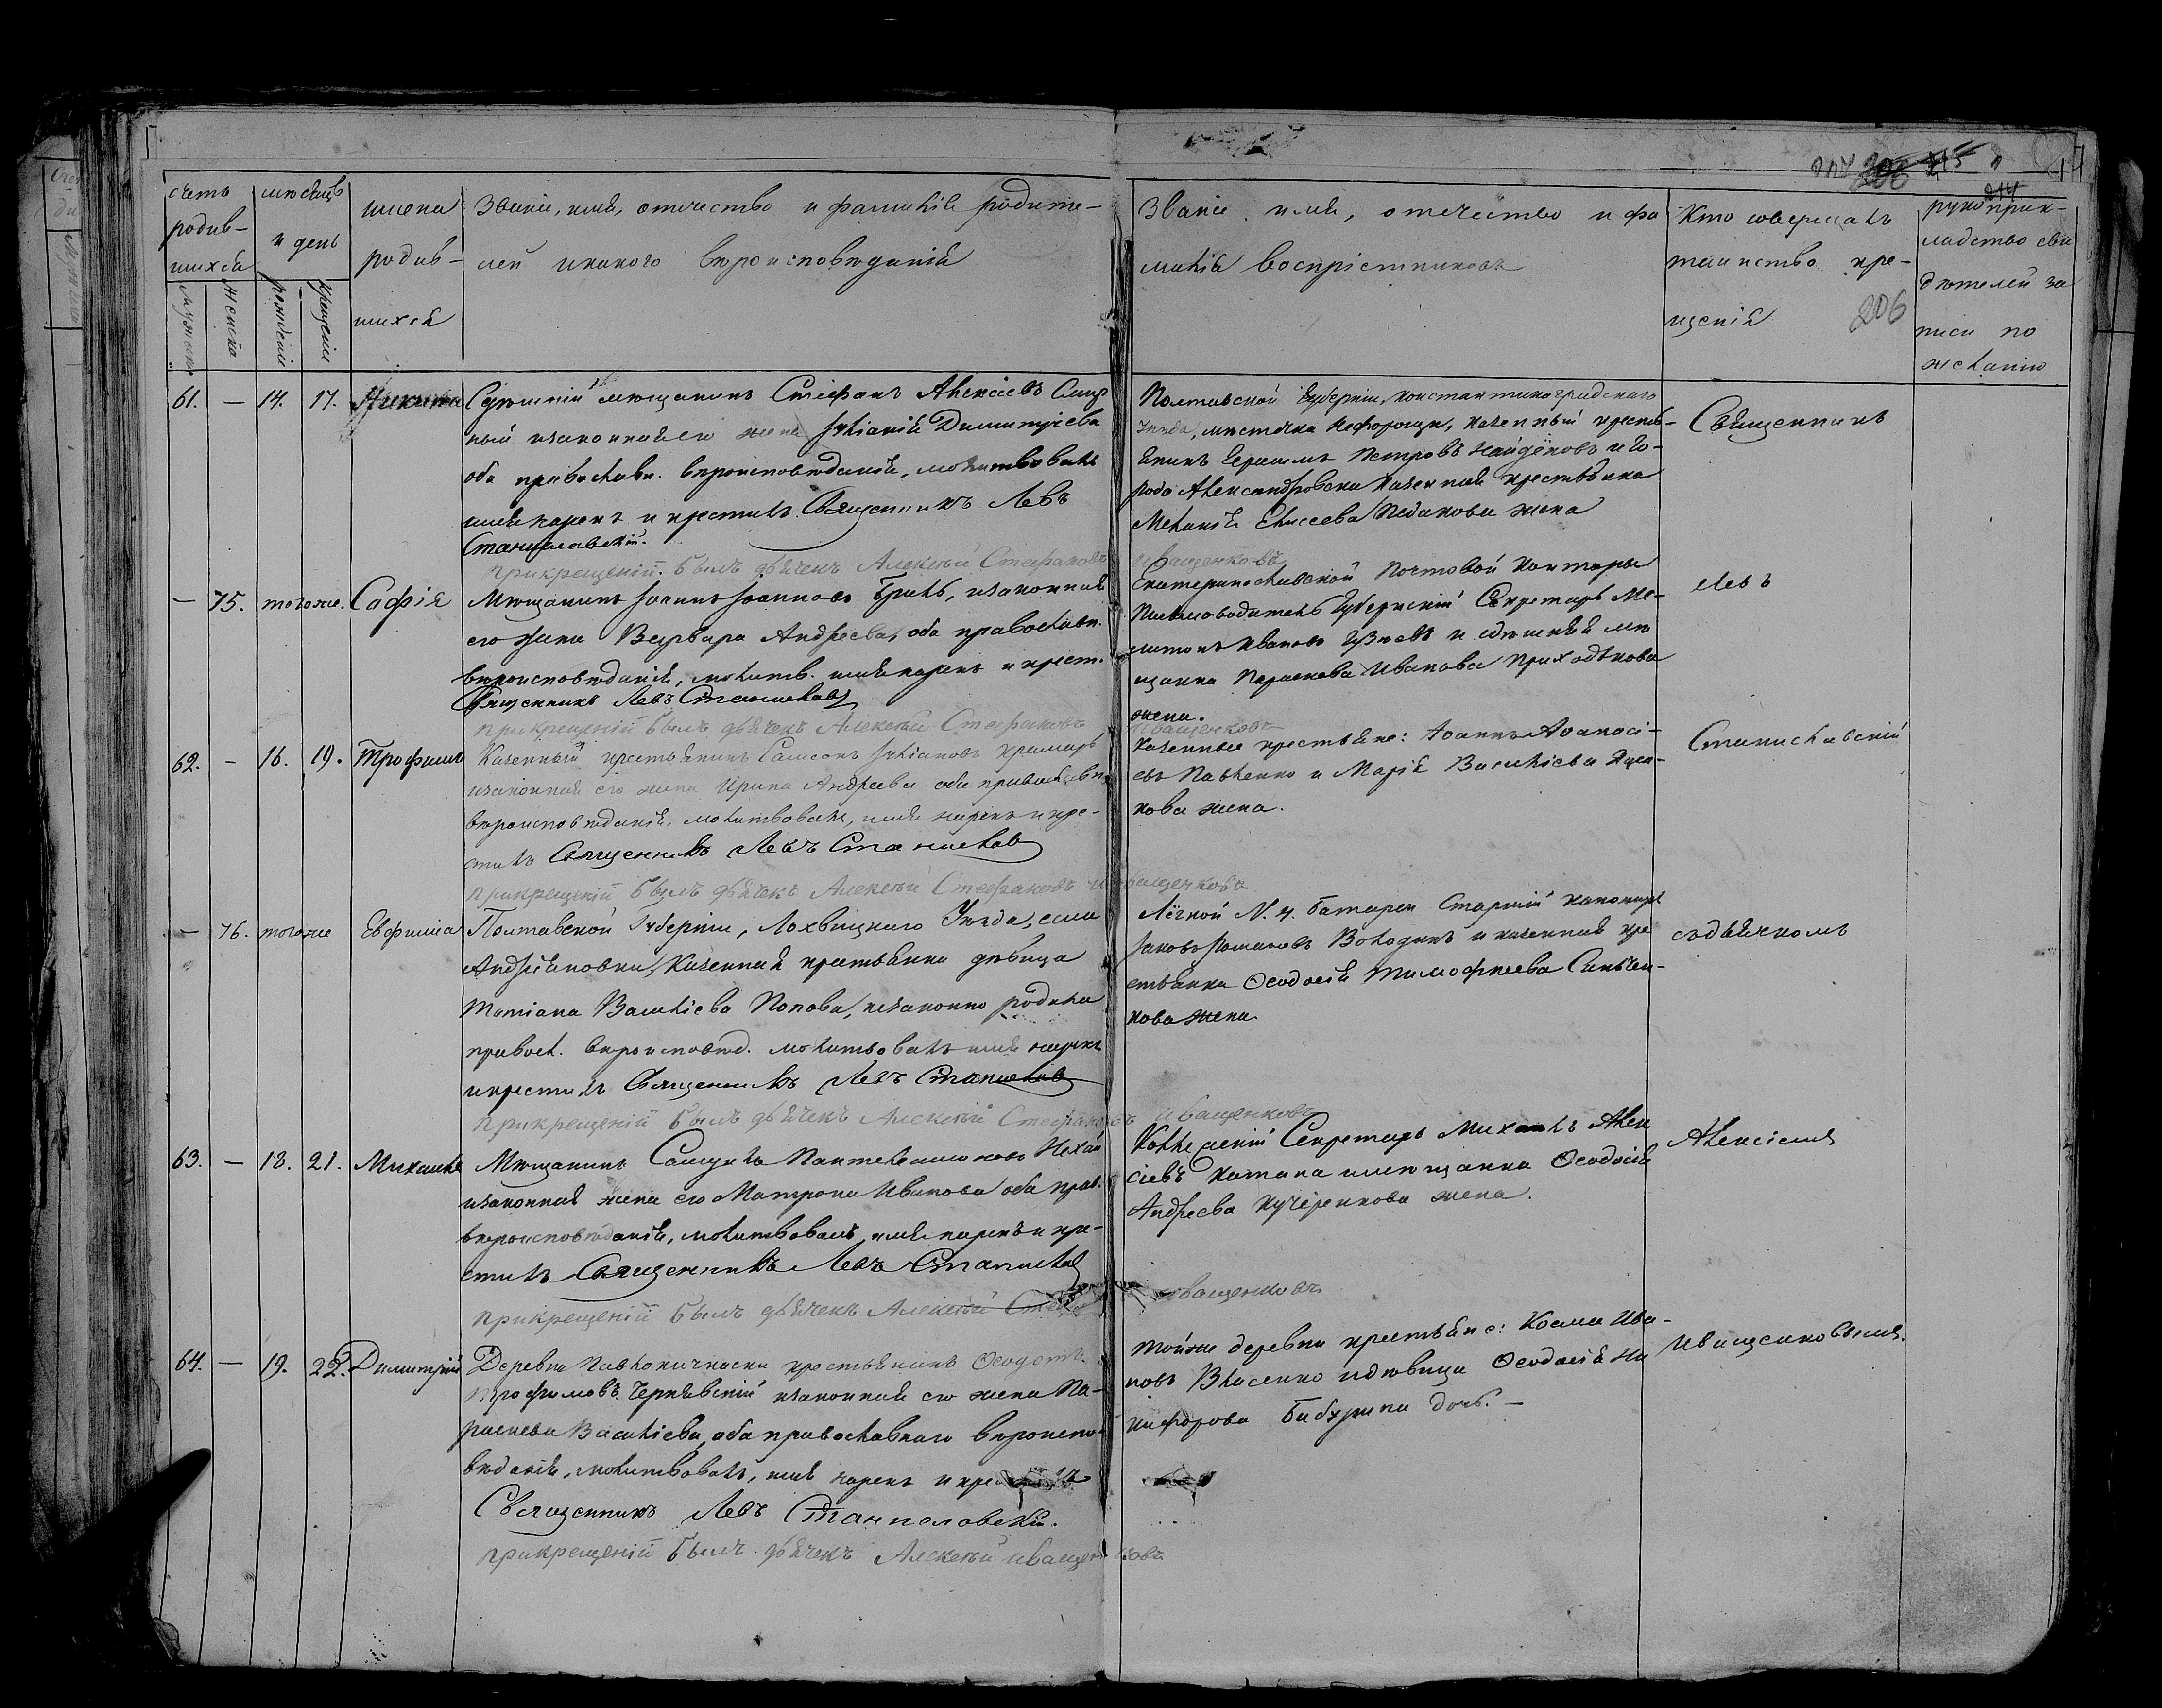 206
счетъ родив-шихся
мѣсяцъ и день
имена родив-шихся
Званіе, имя, отечество и фамилія родите-
лей и какого вѣроисповѣданія
Званіе, имя, отечество и фа
милія воспріемниковъ
Кто совершалъ
таинство кре-
щенія
206
рукоприк-
ладство сви
дѣтелей за
писи по
желанію
мужска
женска
рожденія
крещенія
61. — 14. 17. Никита
Здѣшній мѣщанинъ Стефанъ Алексіевъ
и законная его жена Іуліанія Димитріева
оба православн. вѣроисповѣданія, молитвовалъ
имя нарекъ и крестилъ Священникъ Левъ
Станиславскій.
при крещеніи былъ дьячекъ Алексѣй Стефановъ Иващенковъ
Полтавской Губерніи, Константиноградскаго
уѣзда, мѣстечка Нехорощи, казенный кресть-
янинъ Герасимъ Петровъ Найдёновъ и Го-
рода Александровска казенная крестьянка
Меланія Елисеева жена
Священникъ
— 75. тогоже. Софія
Мѣщанинъ Іоаннъ Іоанновъ Бриль, и законная
его жена Варвара Андреева, оба православн.
вѣроисповѣданія, молитв. имя нарекъ и крест.
Священникъ Левъ Станиславс
при крещеніи былъ дьячекъ Алексѣй Стефановъ Иващенковъ
Екатеринославской Почтовой Конторы
Письмоводитель Губернскій Секретарь Ме-
литонъ Ивановъ и здѣшняя мѣ
щанка Параскева Иванова Приходькова
жена.
Левъ
62. — 16. 19. Трофимъ
Казенный крестьянинъ Самсонъ Іуліановъ Крамарь
и законная его жена Ирина Андреева оба православн.
вѣроисповѣданія, молитвовалъ, имя нарекъ и кре-
стилъ Священникъ Левъ Станислав
при крещеніи былъ дьячекъ Алексѣй Стефановъ Иващенковъ
Казенные крестьяне: Іоаннъ Аѳанасі-
евъ Павленко и Марія Василіева
кова жена.
Станиславскій
— 76. тогоже Евфимія
Полтавской Губерніи, Лохвицкаго Уѣзда, села
Андріяновки, Казенная крестьянка дѣвица
Татіана Василіева Попова, незаконно родила
правосл. вѣроисповѣд. молитвовалъ имя нарекъ
и крестилъ Священникъ Левъ Станислав
при крещеніи былъ дьячекъ Алексѣй Стефановъ Иващенковъ
Лёгкой N. 4. Батареи Старшій канониръ
Іаковъ Романовъ Володинъ и казенная кре
стьянка Ѳеодосія Тимофѣева Синьчен-
кова жена
съ дьячкомъ
63. — 18. 21. Михаилъ
Мѣщанинъ Самуилъ Пантелеимоновъ Нехай
и законная жена его Матрона Иванова оба прав.
вѣроисповѣданія, молитвовалъ, имя нарекъ и кре-
стилъ Священникъ Левъ Станислав
при крещеніи былъ дьячекъ Алексѣй Иващенковъ
Коллежскій Секретарь Михаилъ Алек
сіевъ Катана и мѣщанка Ѳеодосія
Андреева Кучеренкова жена.
Алексіемъ
64. — 19. 22. Димитрій
Деревни Павлокичкаса крестьянинъ Ѳеодотъ
Трофимовъ Чернявскій и законная его жена Па-
раскева Василіева, оба православнаго вѣроиспо-
вѣданія, молитвовалъ, имя нарекъ и крестилъ
Священникъ Левъ Станиславскій.
при крещеніи былъ дьячекъ Алексѣй Иващенковъ
Тойже деревни крестьяне: Косма Ива-
новъ Власенко и дѣвица Ѳеодосія Ни
кифорова Бабушки дочь. —
Иващенковымъ.